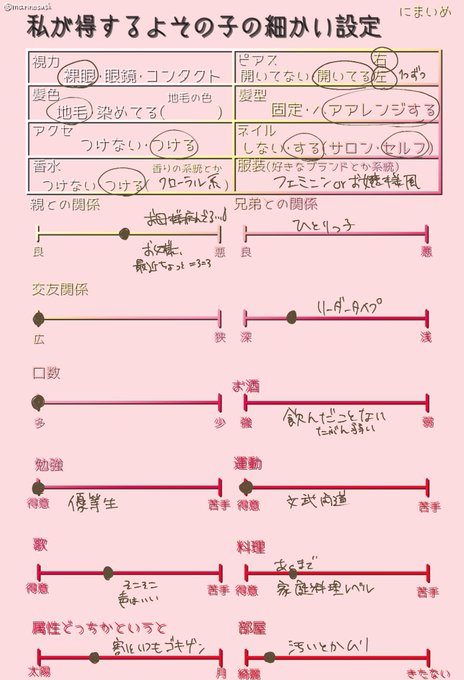 @marinosuki
にまいめ
私が得するよその子の細かい設定
視力
裸眼・眼鏡・コンタクト
ピアス 右
開いてない 開いてる 左 1つずつ
髪色 地毛の色
地毛・染めてる( )
髪型
固定・ アアレンジする
アクセ
つけない・つける
ネイル
しない・する(サロン・セルフ)
香水 香りの系統とか
つけない・つける( フローラル系
服装(好きなブランドとか系統)
フェミニン or お嬢様風
親との関係
良 悪
最近ちょっと
兄弟との関係
ひとりっ子
良 悪
交友関係
広 狭
リーダータイプ
深 浅
口数
多 少
お酒
強 弱
飲んだことない
たぶん弱い
勉強
得意 苦手
優等生
運動
得意 苦手
文武両道
歌
得意 苦手
そこそこ
声はいい
料理
あくまで
家庭料理レベル
得意 苦手
属性どっちかというと
割といつもゴキゲン
太陽 月
部屋
汚いとかムリ
綺麗 きたない